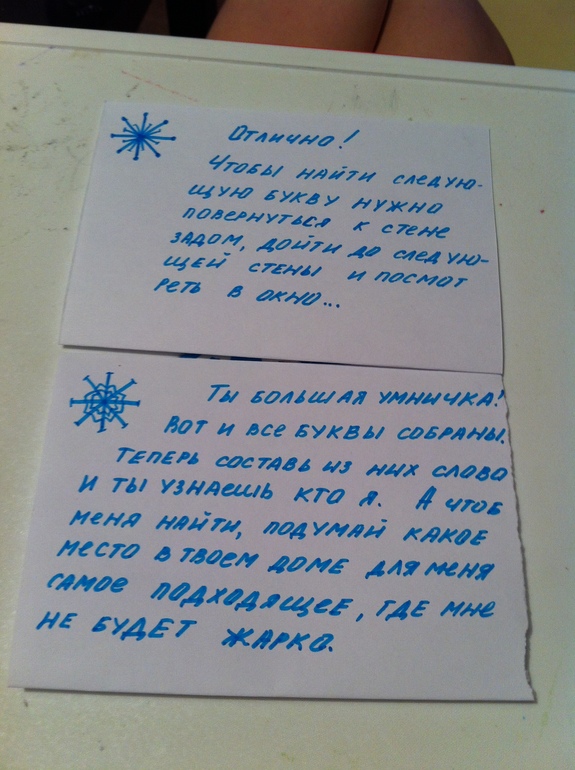 Отлично!
Чтобы найти следую-
щую букву нужно
повернуться к стене
задом, дойти до следую-
щей стены и посмот
реть в окно...
Ты большая умничка!
Вот и все буквы собраны.
Теперь составь из них слово
и ты узнаешь кто я. А чтоб
меня найти, подумай какое
место в твоем доме для меня
самое подходящее, где мне
не будет жарко.